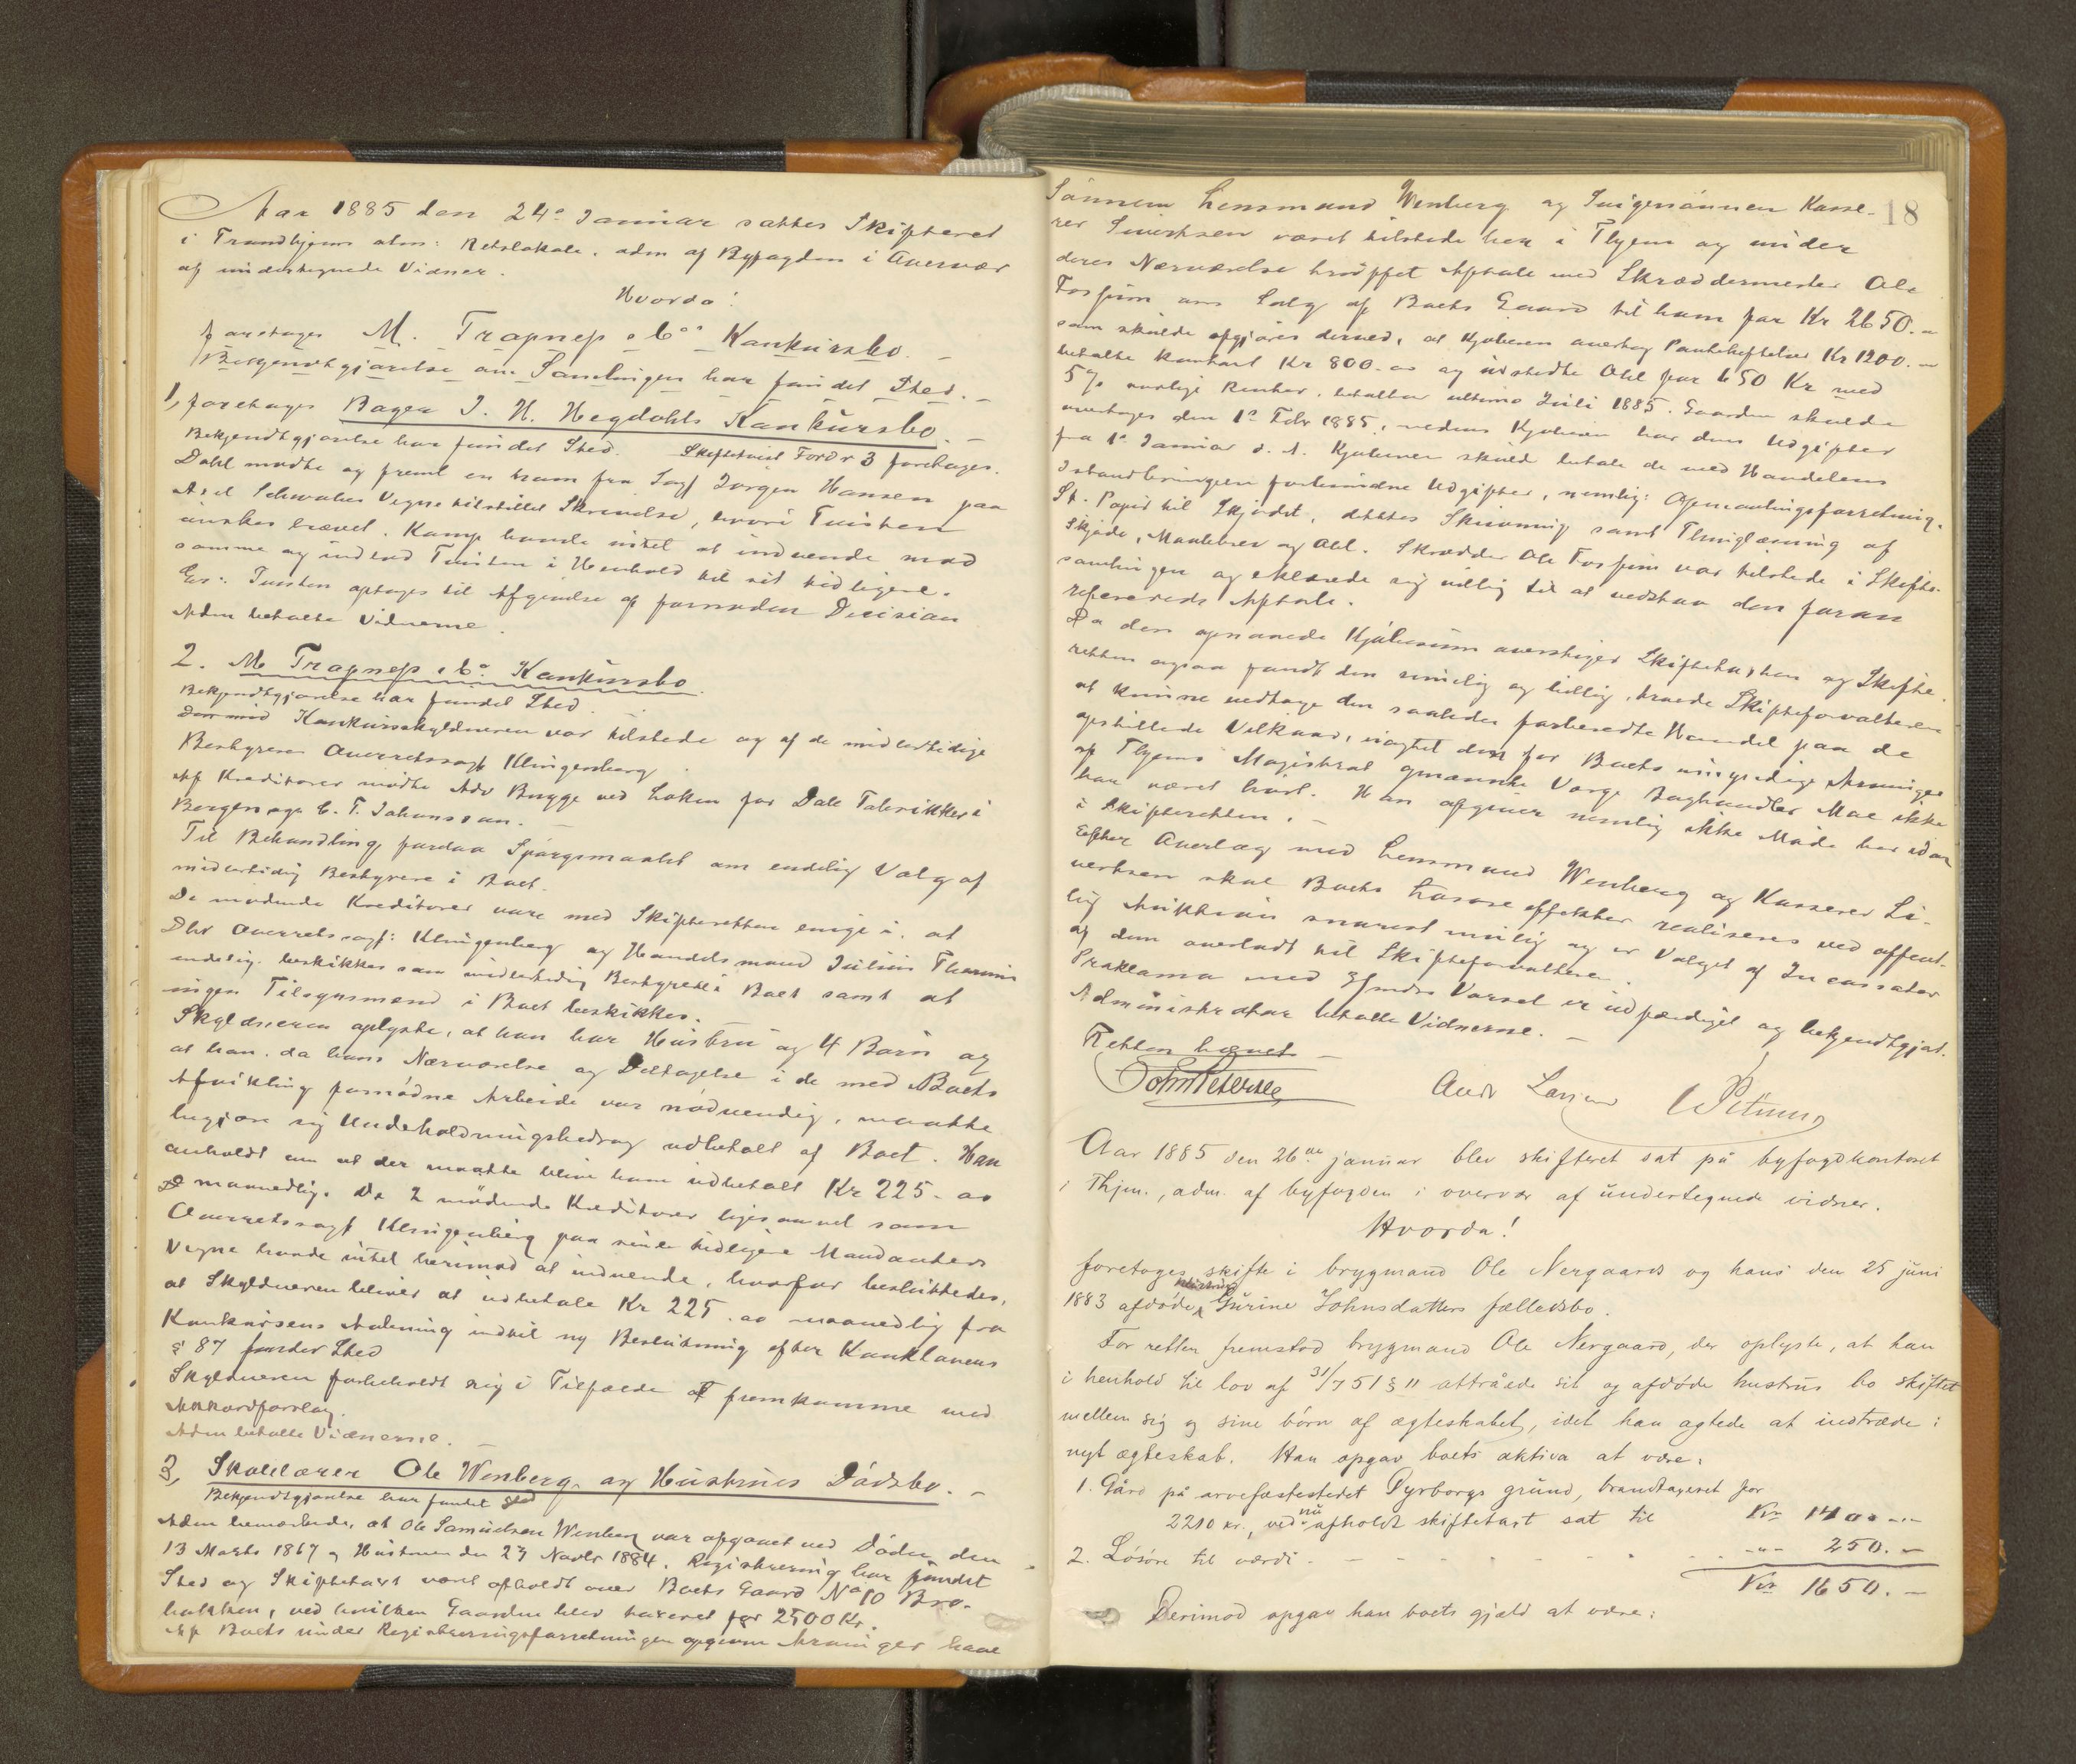 Aar 1885 den 24de Januar sattes Skifteret
i Trondhjems alm: Retslokale, adm af Byfogden i Overvær
af undertegnede Vidner.
Hvorda!
foretages M. Trapness & Co's Konkursbo. –
Bekjendtgjørelse om Samlingen har fundet Sted. –
1, foretages Bager J. H. Hegdahls Konkursbo. –
Bekjendtgjørelse har fundet Sted. Skiftetvist Fordr 3 foretages.
Dahl mødte og freml en ham fra Sagf Jørgen Hansen paa
Axel Schwabes Vegne tilstillet Skrivelse, hvori Tvisten
ønskes hævet. Kamp havde intet at indvende mod
samme og indlod Tvisten i Henhold til sit tidligere.
Eur: Tvisten optages til Afgivelse af fornøden Decision
Adm betalte Vidnerne.
2. M Trapness & Co. Konkursbo.
Bekjendtgjørelse har fundet Sted.
Konkursskyldneren var tilstede og af de midlertidige
Bestyrere Overretssagf Klingenberg.
Af Kreditorer mødte Adv Bugge ved Løken for Dale Fabrikker i
Bergen og C. F. Johansson. –
Til Behandling forelaa Spørgsmaalet om endelig Valg af
midlertidig Bestyrere i Boet.
De mødende Kreditorer vare med Skifteretten enige i, at
Dhr Overretssagf: Klingenberg og Handelsmand Julius Thams
endelig beskikkes som midlertidig Bestyrere i Boet samt at
ingen Tilsynsmænd i Boet beskikkes.
Skyldneren oplyste, at han har Hustru og 4 Børn og
at han, da hans Nærværelse og Deltagelse i de med Boets
Afvikling fornødne Arbeide var nødvendig, maatte
begjære sig Underholdningsbidrag udbetalt af Boet. Han
anholdt om at der maatte blive ham udbetalt Kr 225.00
maanedlig. De 2 mødende Kreditorer ligesaavel som
Overretssagf Klingenberg paa sine tidligere Mandanters
Vegne havde intet herimod at indvende, hvorfor besluttedes,
at Skyldneren bliver at udbetale Kr 225.00 maanedlig fra
Konkursens Aabning indtil ny Beslutning efter Konklovens
§ 87 finder Sted
Skyldneren forbeholdt sig i Tilfælde at fremkomme med
Akkordforslag.
Adm betalte Vidnerne. –
3, Skolelærer Ole Wenberg og Hustrues Dødsbo. –
Bekjendtgjørelse har fundet Sted
Adm bemærkede, at Ole Samuelsen Wenberg var afgaaet ved Døden den
13 Marts 1867 og Hustruen den 27 Novbr 1884. Registrering har fundet
Sted og Skiftetaxt været afholdt over Boets Gaard No 10 Bro-
bakken, ved hvilken Gaarden blev taxeret for 2500 Kr.
Af Boets under Registreringsforretningen opgivne Arvinger have
18
Sønnen Lensmand Wenberg og Svigersønnen Kasse-
rer Sivertsen været tilstede her i Thjem og under
deres Nærværelse truffet Aftale med Skræddermester Ole
Fossum om Salg af Boets Gaard til ham for Kr 2650.–
som skulde opgjøres derved, at Kjøberen overtog Pantehæftelser Kr 1200.–
betalte kontant Kr 800.00 og udstedte Obl for 650 Kr med
5% aarlige Renter, betalbar ultimo Juli 1885. Gaarden skulde
overtages den 1ste Febr 1885, medens Kjøberen har dens Udgifter
fra 1ste Januar d. A. Kjøberen skuld betale de med Handelens
Istandbringen forbundne Udgifter, nemlig: Opmaalingsforretning,
St. Papir til Skjødet, dettes Skrivning samt Thinglæsning af
Skjøde, Maalebrev og Obl. Skrædder Ole Fossum var tilstede i Skifte-
samlingen og erklærede sig villig til at vedstaa den foran
refererede Aftale.
Da den opnaaede Kjøbesum overstiger Skiftetaxten og Skifte-
retten ogsaa fandt den rimelig og billig, troede Skifteforvalteren
at kunne vedtage den saaledes forberedte Handel paa de
opstillede Vilkaar, uagtet den for Boets umyndige Arvinger
af Thjems Magistrat opnævnte Værge Boghandler Moe ikke
har været hørt. Han afgiver nemlig ikke Møde her idag
i Skifteretten. –
Efter Overlæg med Lensmand Wenberg og Kasserer Si-
vertsen skal Boets Løsøreeffekter realiseres ved offent-
lig Auktion snarest mulig og er Valget af Incassator
af dem overladt til Skifteforvalteren.
Proklama med 3 Mdrs Varsel er udfærdiget og bekjendtgjort.
Administrator betalte Vidnerne. –
Retten hævet –
John Petersen Andr Larsen
Aar 1885 den 26de januar blev skifteret sat på byfogdkontoret
i Thjm., adm. af byfogden i overvær af undertegnede vidner.
Hvorda!
foretoges skifte i brygmand Ole Nergaards og hans den 25 juni
1883 afdøde hustru Gurine Johnsdatters fællesbo.
For retten fremstod brygmand Ole Nergaard, der oplyste, at han
i henhold til lov af 31/7 51 § 11 attråede sit og afdøde hustrus bo skiftet
mellem sig og sine børn af ægteskabet, idet han agtede at indtræde i
nyt ægteskab. Han opgav boets aktiva at være:
1. Gård på arvefæstestedet Dyrborgs grund, brandtaxeret for
2210 kr., ved nu afholdt skiftetaxt sat til Kr 1400.–
2. Løsøre til værdi – – – – – – „ 250.–
Kr 1650.–
Derimod opgav han boets gjæld at være: